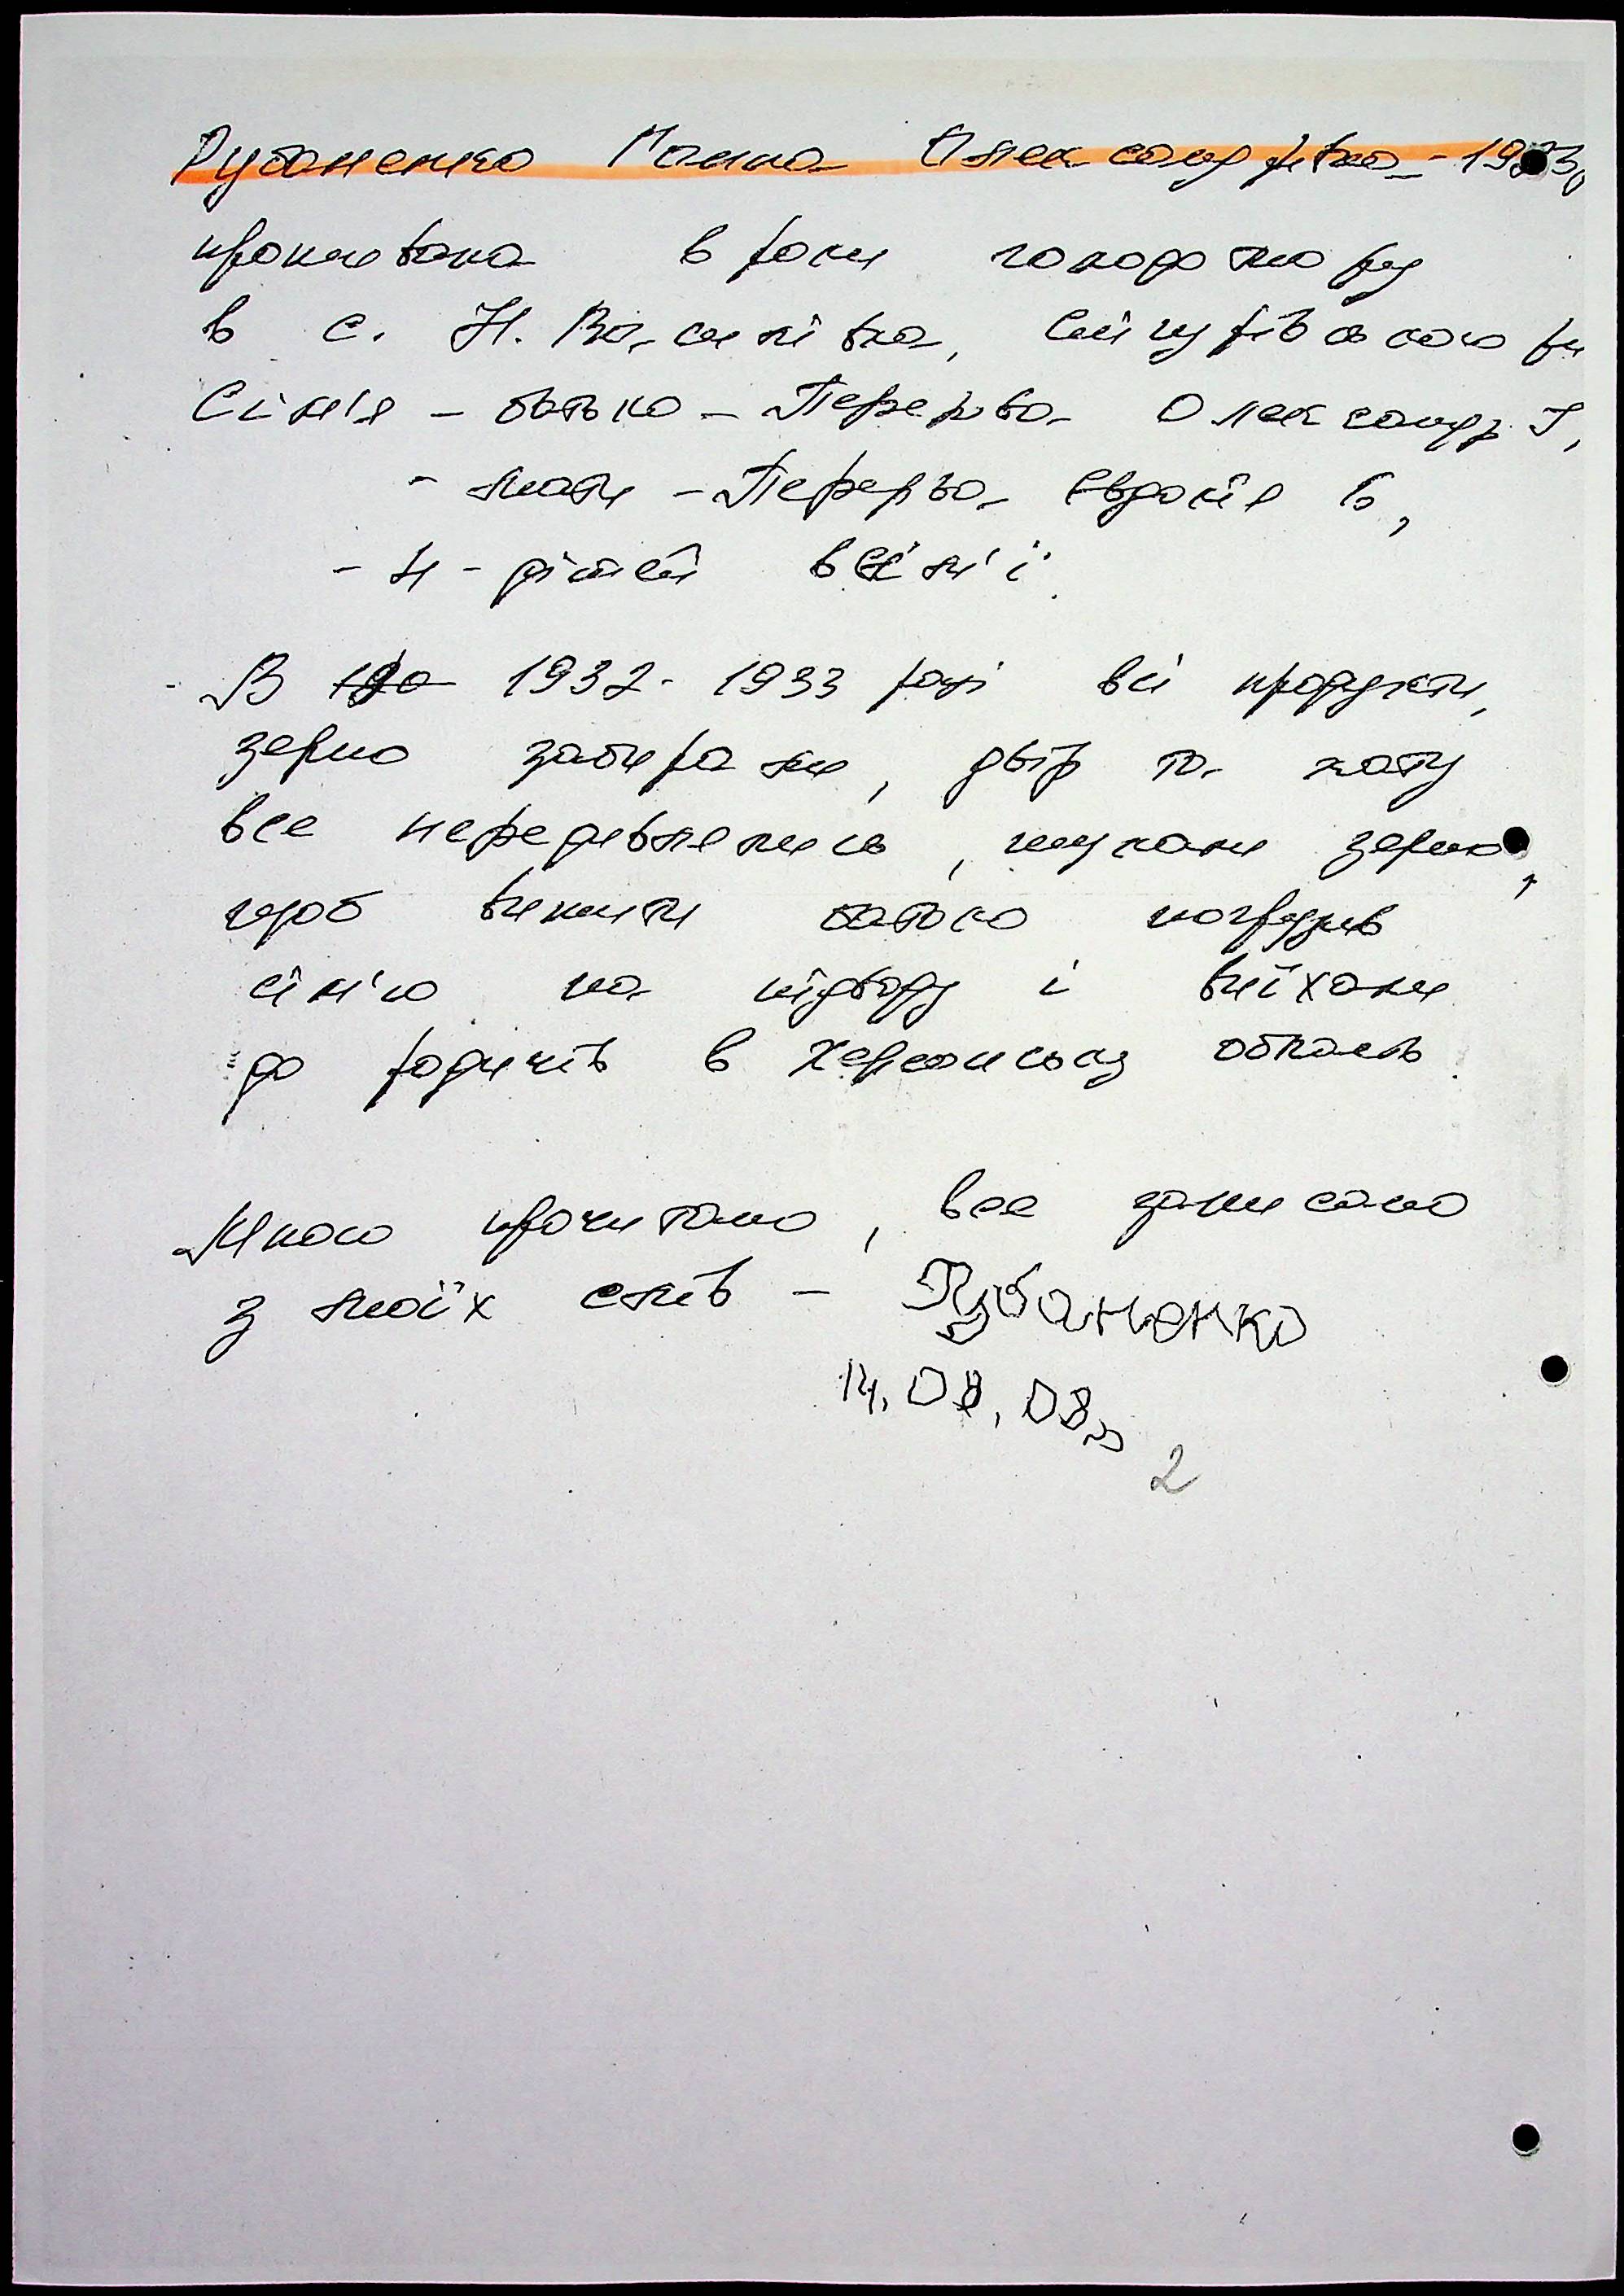 Рубаненко Ганна Олександрівна - 19
проживала в роки голодомору
в с. Н. Василівка, Снігурівського р-н
Сім'я - батько - Перерва Олександр І,
- мати - Перерва Євдокія Б,
- 4 - дітей в сім'ї.
- В 190 1932 - 1933 році всі продукти,
зерно забирали, двір та хату
все передивлялись, шукали зерно,
щоб вижити батько погрузив
сім'ю на підводу і виїхали
до родичів в Херсонську область.
Мною прочитано, все записано
з моїх слів - Рубаненко
14.08.08
2